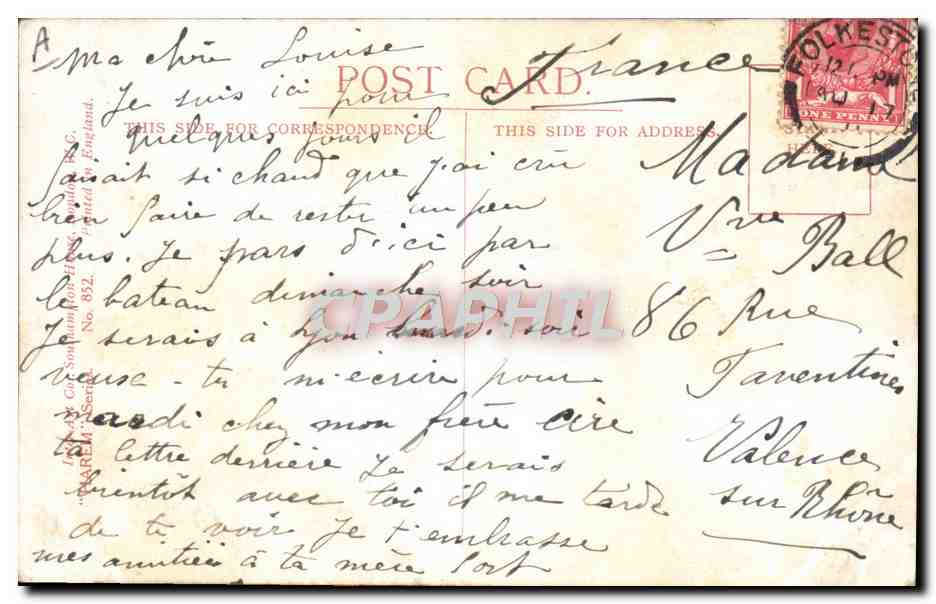 A
Ma chère Louise
Je suis ici pour
quelques jours il
faisait si chaud que j'ai cru
bien faire de rester un peu
plus. Je pars d'ici par
le bateau dimanche soir
Je serais à Lyon lundi soir
veuse-tu m'ecrire pour
mardi chez mon frère
ta lettre derrière Je serais
bientôt avec toi il me tarde
de te voir Je t'embrasse
mes amitiés à ta mère
POST CARD.
THIS SIDE FOR CORRESPONDENCE.
THIS SIDE FOR ADDRESS.
France
Madame
Vve Ball
86 Rue
Faventines
Valence
sur Rhône
FOLKESTONE
12 PM
17
ONE PENNY
HERE
Southampton House, London, W.C.
"HAREM" Series. No. 852. Printed in England.
CPAPHIL